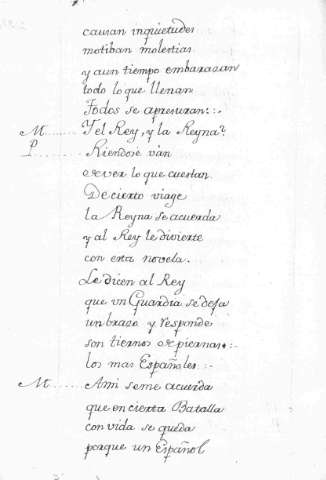 causan inquietudes
motiban molestias
y aun tiempo embarazan
todo lo que llenan
Todos se apresuran:.
M....... Y el Rey, y la Reyna?
P....... Riendose ván
de ver lo que cuestan.
De cierto viage
la Reyna se acuerda
y al Rey le divierte
con esta novela.
Le dicen al Rey
que un Guardia se deja
un brazo y responde
son tiernos de piernas:.
los mas Españoles:.
M....... Ami seme acuerda
que en cierta Batalla
con vida se queda
porque un Español